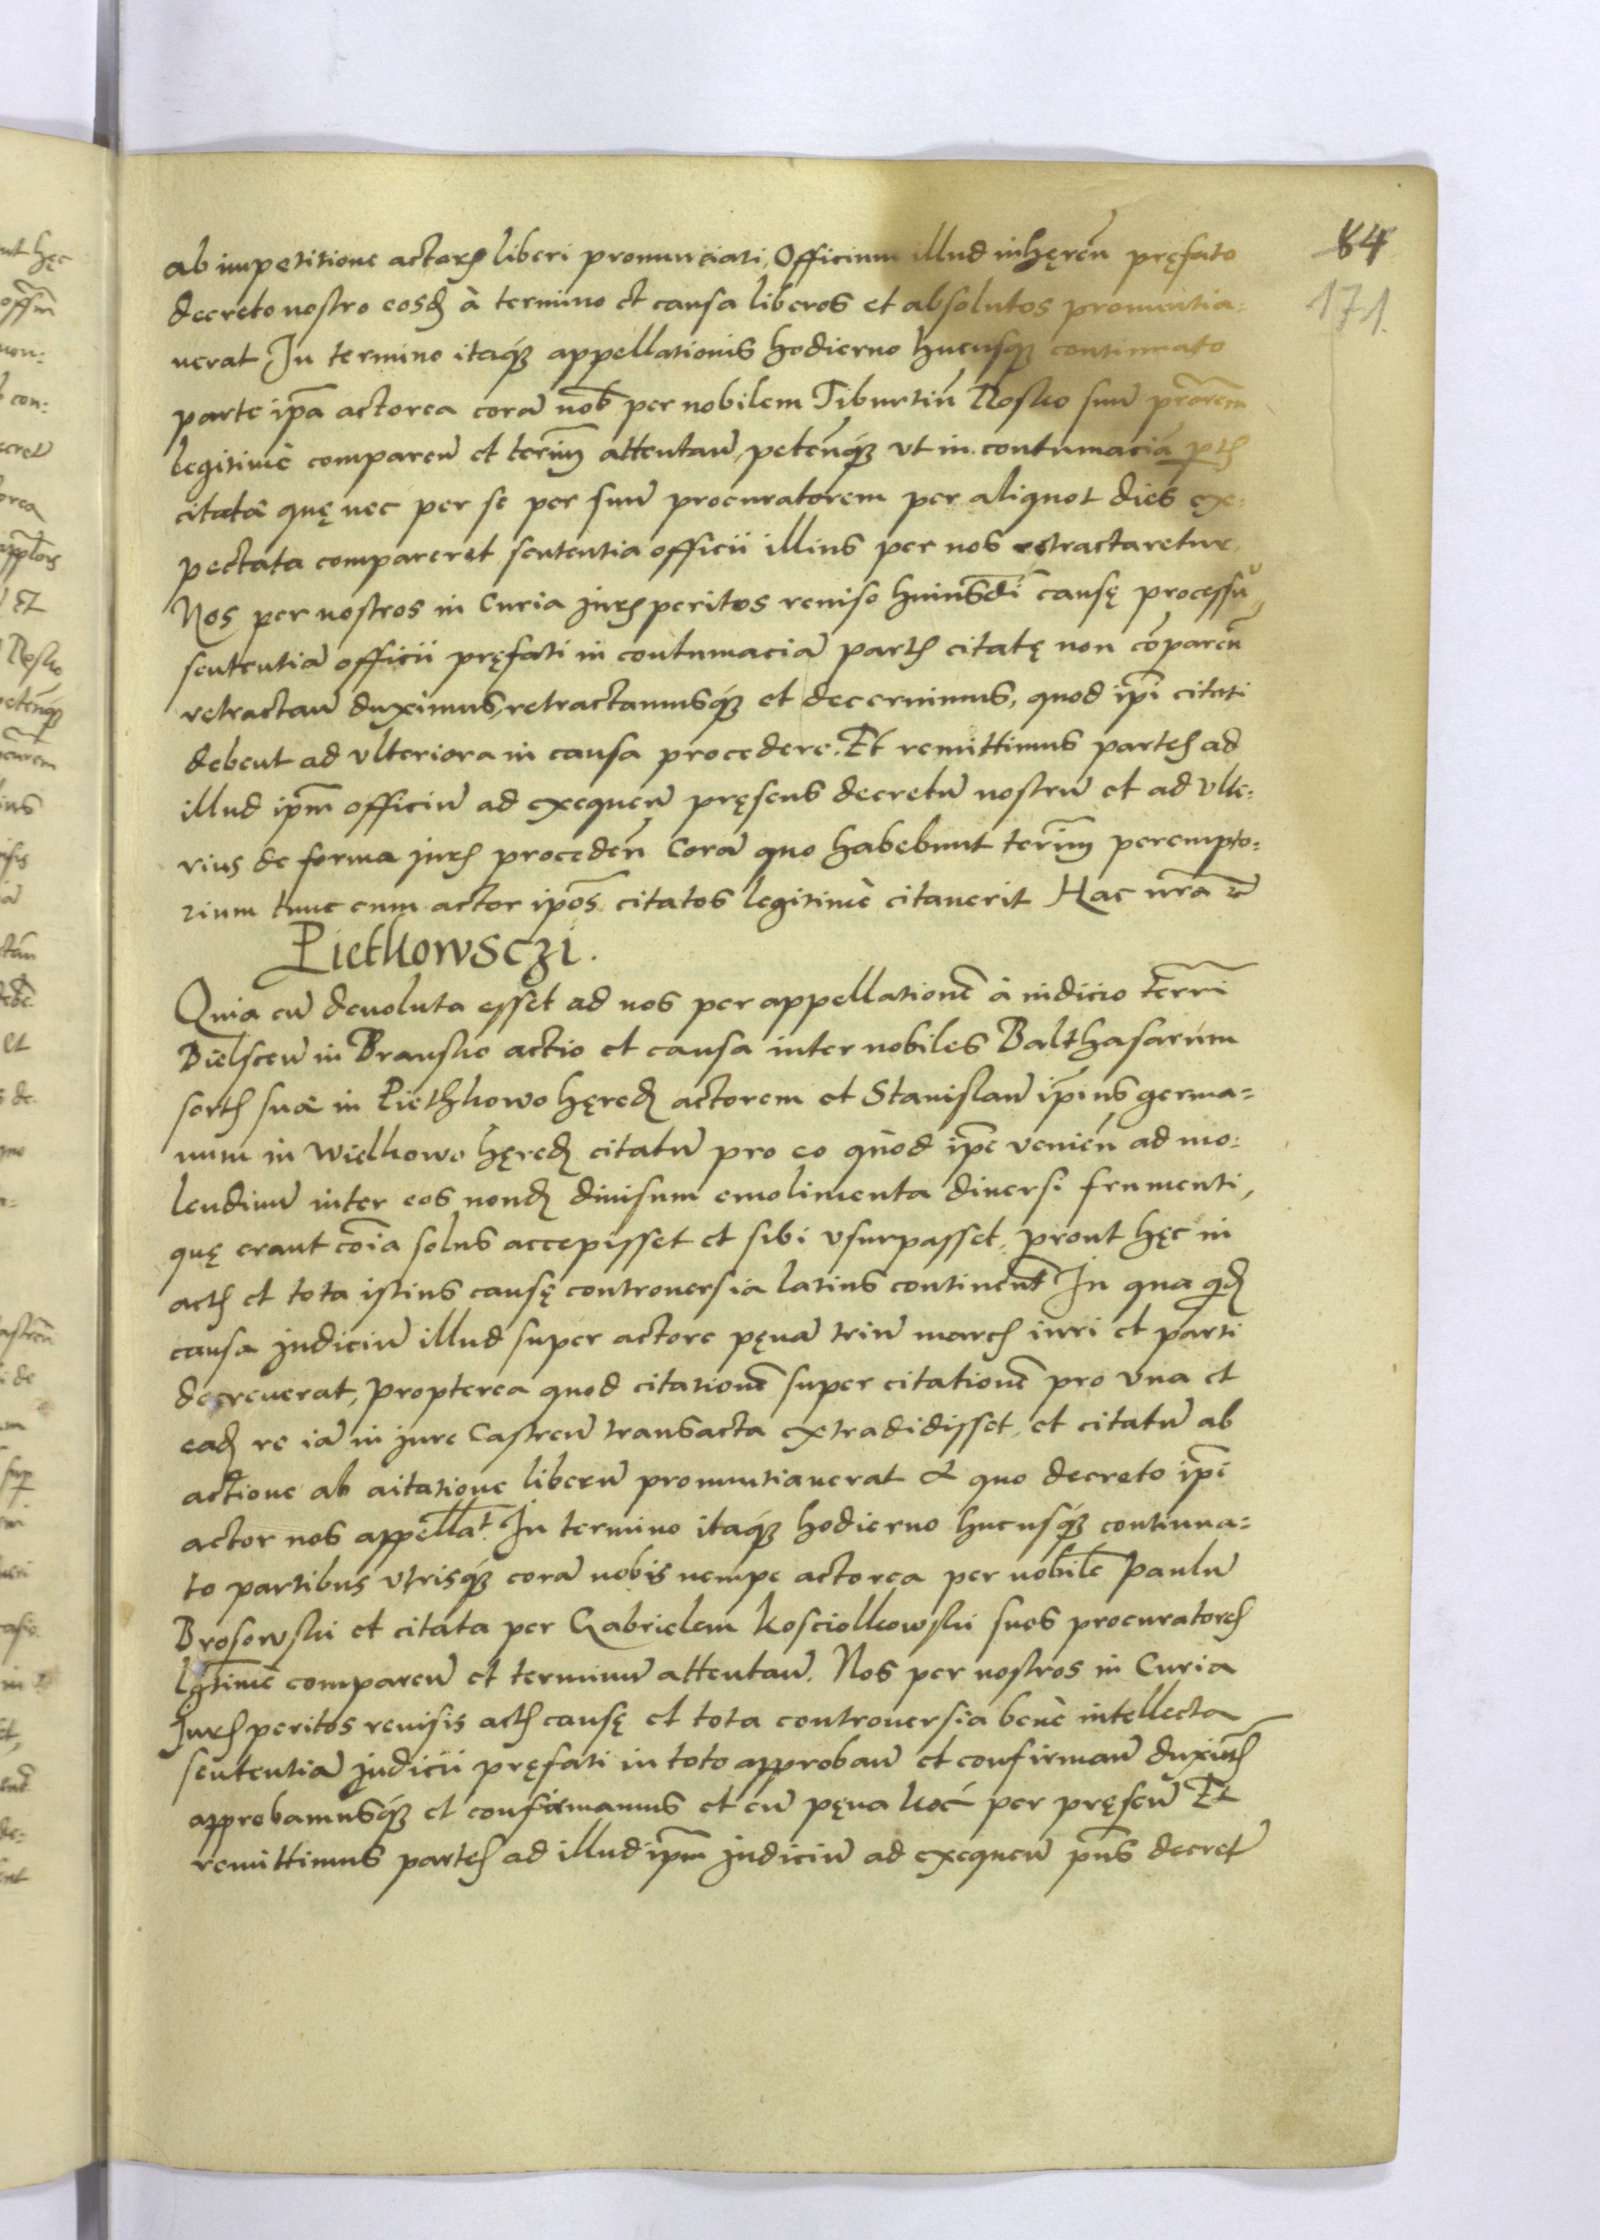 64
171.
ab impetitione actoris liberi pronunciati, Officium illud inhęreñ pręfato
decreto nostro eosd à termino et causa liberos et absolutos pronuntia:
uerat In termino itaq́ appellationis hodierno hucusq́ continuato
parte ip̃a actorea corã nob̃ per nobilem Tiburtiũ Nosko suũ pr̃orem
legitimè comparen̄ et term̃ attentan̄, peten̄q́ vt in contumaciã p̱tis
citatæ quę nec per se per suũ procuratorem per aliquot dies ex:
pectata compareret sententia officii illius per nos retractaretur
Nos per nostros in Curia juris peritos reuiso huiusc̃di causę processu,
sententiã officii pręfati in contumaciã partis citatę non cõparen̄
retractan̄ duximus, retractamusq́ et decernimus, quod ip̃i citati
debent ad vlteriora in causa procedere. Et remittimus partes ad
illud ip̃m officiũ ad exequen̄ pręsens decretũ nostrũ et ad vlte:
rius de forma juris proceden̄ Corã quo habebunt term̃ perempto:
rium tunc cum actor ip̃os citatos legitimè citauerit Hac nr̃a etc̃
Piethowsczi.
Quia cũ deuoluta esset ad nos per appellationẽ à iudicio terr̃i
Bielscen̄ in Bransko actio et causa inter nobiles Balthasarum
sortis suæ in Piethkowo hęred actorem et Stanislaũ ip̃ius germa=
num in Wielkowo hęred citatũ pro eo quòd ip̃e venien̄ ad mo:
lendinũ inter eos nond diuisum emolimenta diuersi frumenti,
quę erant cõia solus accepisset et sibi vsurpasset, prout hęc in
actis et tota istius causę controuersia latius continent̃ In qua qd
causa judiciũ illud super actore pęnã triũ marcis iuri et parti
decreuerat, propterea quod citationẽ super citationẽ pro vna et
ead re iã in jure Castren̄ transacta extradidisset, et citatũ ab
actione ab aitatione liberũ pronuntiauerat A quo decreto ip̃e
actor nos appellat̃ In termino itaq́ hodierno hucusq́ continua=
to partibus vtrisq́ corã nobis nempe actorea per nobilẽ Paulũ
Brosowski et citata per Gabrielem Kosciolkowski suos procuratores
lg̃timè comparen̄ et terminũ attentan̄. Nos per nostros in Curia
Juris peritos reuisis actis causę et tota controuersia benè intellecta
sententiã judicii pręfati in toto approban̄ et confirman̄ duxim̃
approbamusq́ et confirmamus et cũ pęna hoc per pręsen̄ Et
remittimus partes ad illud ip̃m judiciũ ad exequen̄ pñs decret̃